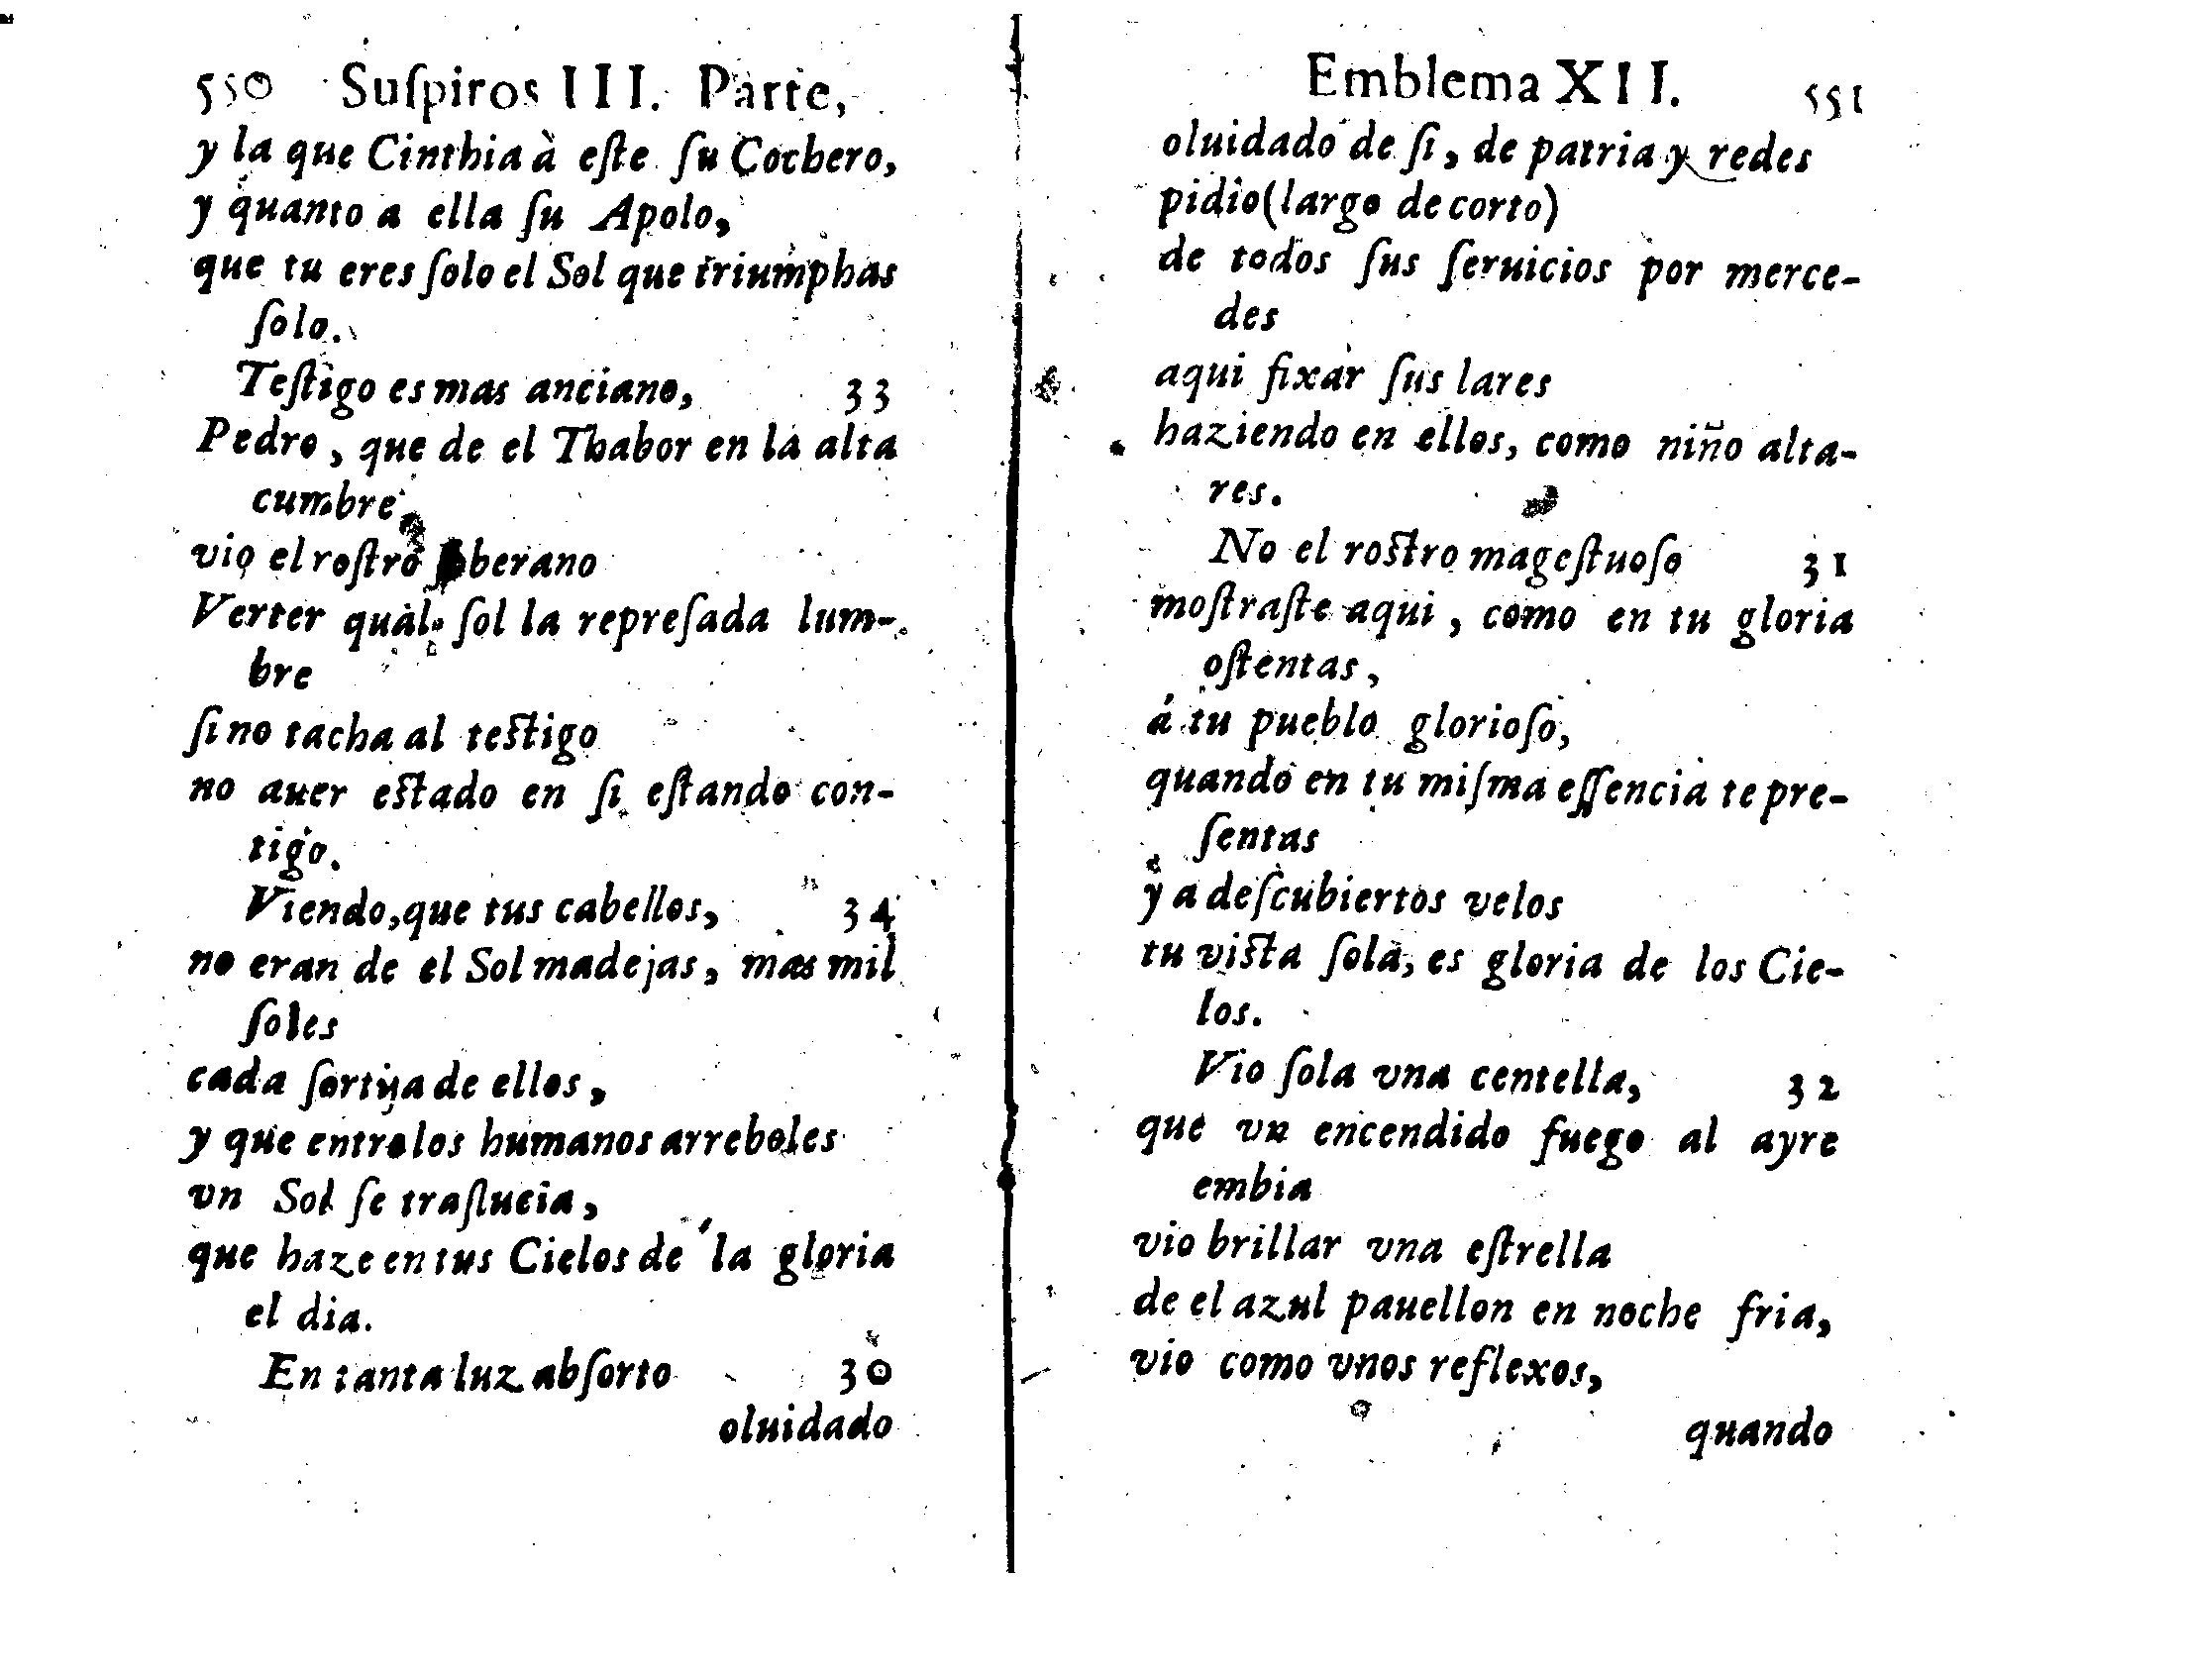 550 Suſpiros III. Parte,
y la que Cinthia à eſte ſu Cochero,
y quanto a ella ſu Apolo,
que tu eres ſolo el Sol que triumphas
ſolo.
Teſtigo es mas anciano, 33
Pedro, que de el Thabor en la alta
cumbre
vio el roſtro ſoberano
Verter qual ſol la repreſada lum-
bre
ſi no tacha al teſtigo
no auer eſtado en ſi eſtando con-
tigo.
Viendo, que tus cabellos, 34
no eran de el Sol madejas, mas mil
ſoles
cada ſortija de ellos,
y que entre los humanos arreboles
vn Sol ſe traſlucia,
que haze en tus Cielos de la gloria
el dia.
En tanta luz abſorto 30
oluidado
Emblema XII. 551
oluidado de ſi, de patria y redes
pidio (largo de corto)
de todos ſus ſeruicios por merce-
des
aqui fixar ſus lares
haziendo en ellos, como niño alta-
res.
No el roſtro mageſtuoſo 31
moſtraſte aqui, como en tu gloria
oſtentas,
á tu pueblo glorioſo,
quando en tu miſma eſſencia te pre-
ſentas
y a deſcubiertos velos
tu viſta ſola, es gloria de los Cie-
los.
Vio ſola vna centella, 32
que vn encendido fuego al ayre
embia
vio brillar vna eſtrella
de el azul pauellon en noche fria,
vio como vnos reflexos,
quando